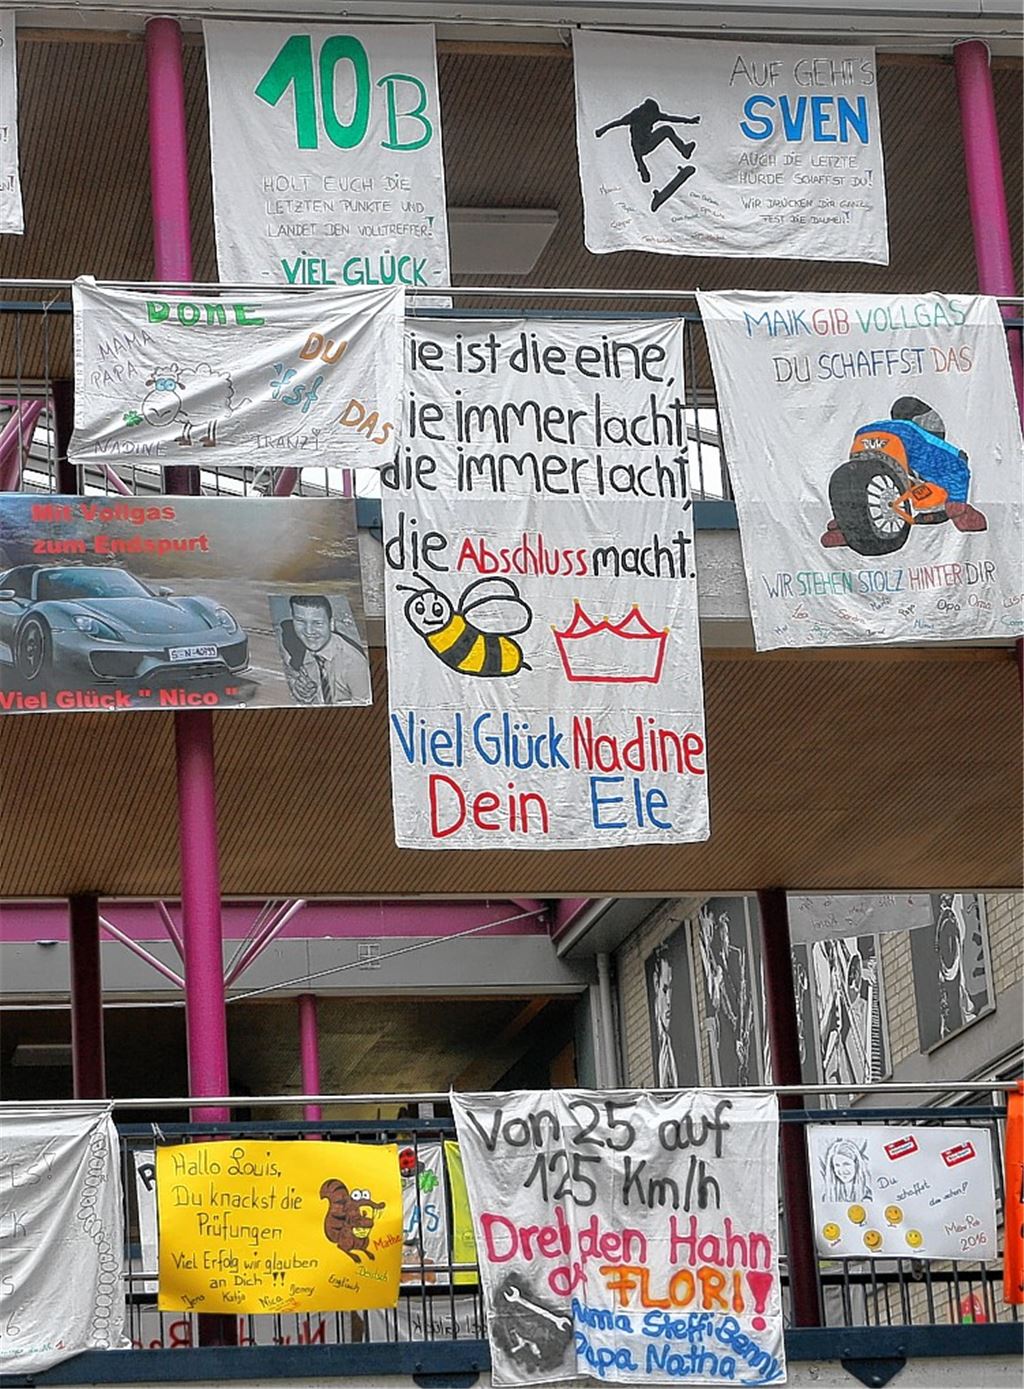 10B
HOLT EUCH DIE
LETZTEN PUNKTE UND
LANDET DEN VOLLTREFFER!
- VIEL GLÜCK -
AUF GEHT'S
SVEN
AUCH DIE LETZTE
HÜRDE SCHAFFST DU!
WIR DRÜCKEN DIR GANZ
FEST DIE DAUMEN!
DU
DAS
MAMA
PAPA
NADINE
ie ist die eine,
ie immer lacht
die immer lacht,
die Abschluss macht.
Viel Glück Nadine
Dein Ele
MAIK GIB VOLLGAS
DU SCHAFFST DAS
WIR STEHEN STOLZ HINTER DIR
Opa Oma
Mit Vollgas
zum Endspurt
Viel Glück " Nico "
Hallo Louis,
Du knackst die
Prüfungen
Viel Erfolg wir glauben
an Dich !!
Jena Katja Nico Jenny
Englisch
Deutsch
Mathe
AS
Von 25 auf
125 Km/h
Dreh den Hahn
FLORI!
Steffi Benny
Papa Natha
Du
schaffst
das schon!
2016